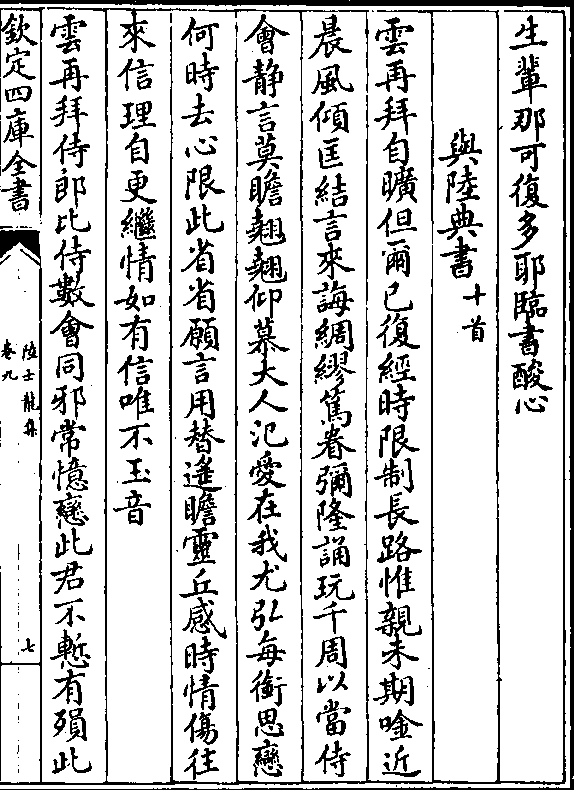 生輩那可復多耶臨書酸心
與陸典書十首
雲再拜自曠但爾已復經時限制長路惟親未期唫近
晨風傾匡結言來誨綢繆篤眷彌隆誦玩千周以當侍
會静言莫瞻翹翹仰慕大人氾愛在我尤弘每銜思戀
何時去心限此省省願言用替遙瞻靈丘感時情傷往
來信理自更繼情如有信唯不玉音
雲再拜侍郎比侍數會同邪常憶戀此君不慙有殞此
欽定四庫全書
陸士龍集
卷九
七